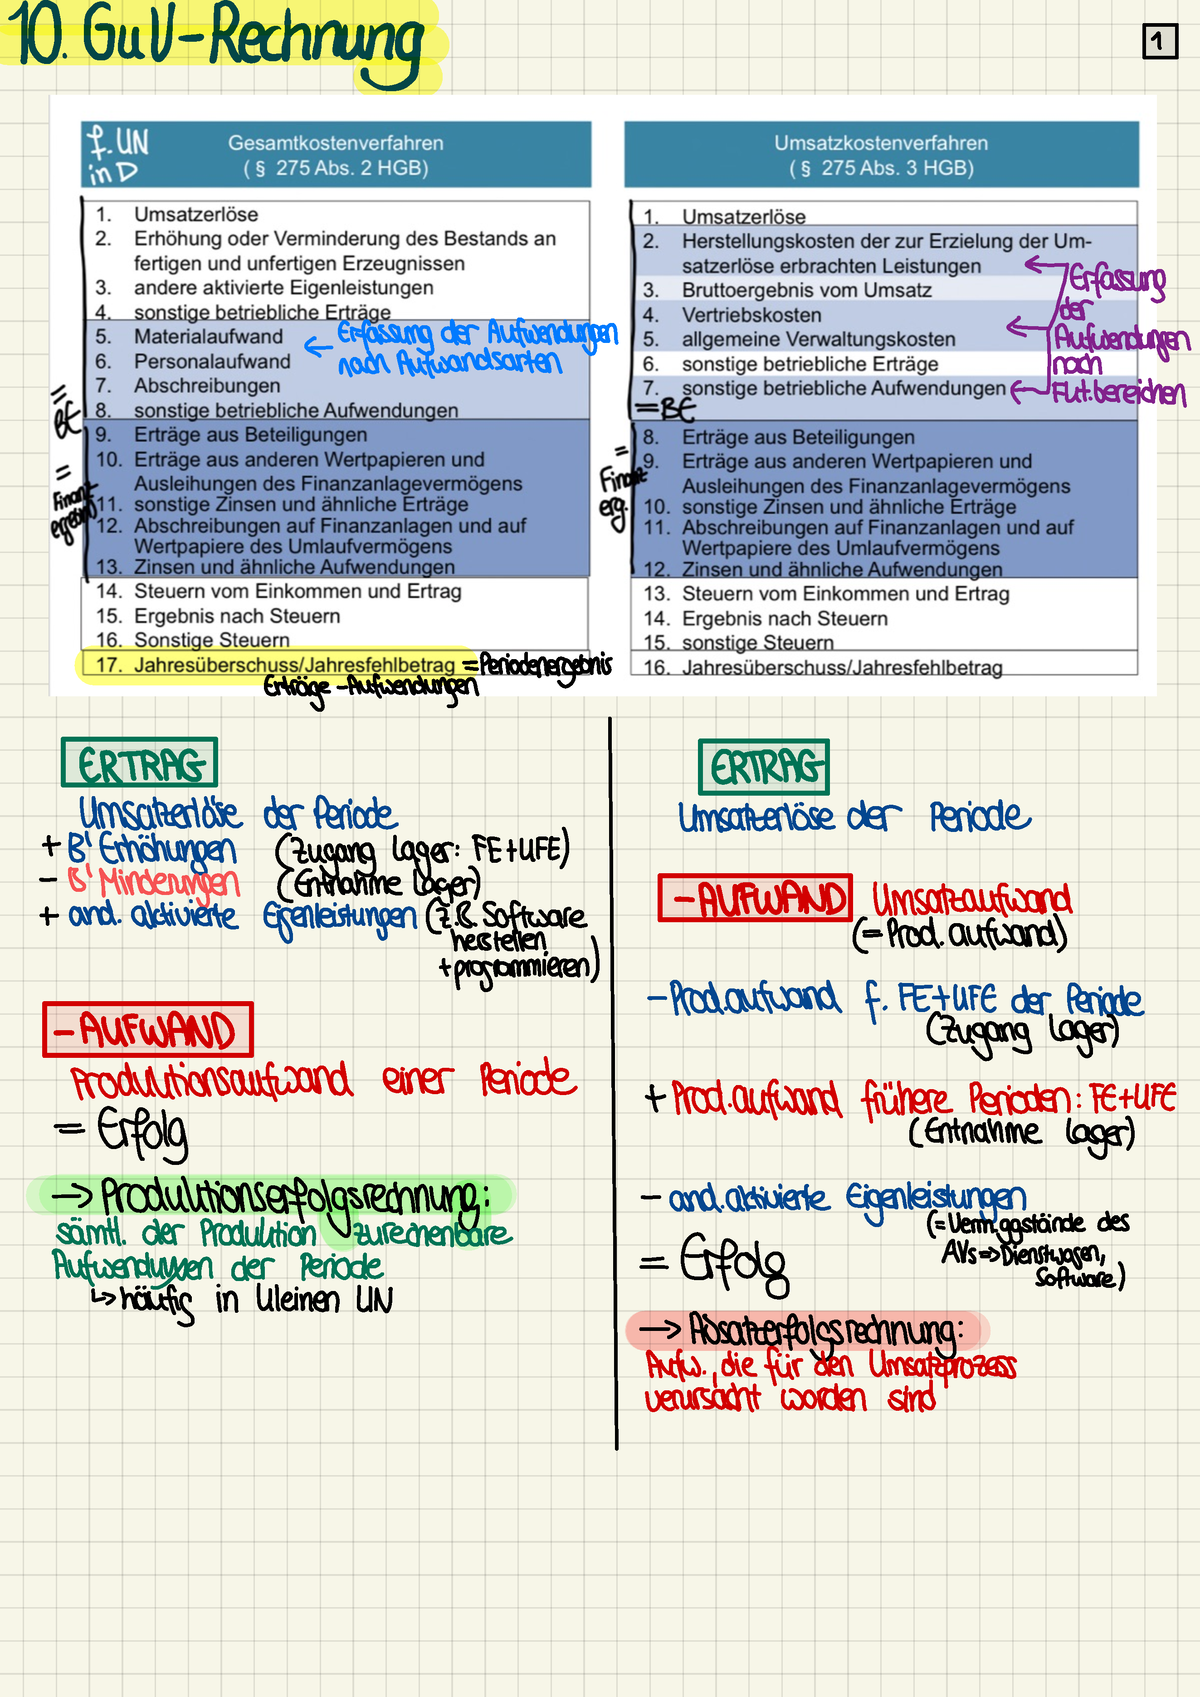 10. GuV-Rechnung
1
f. UN
in D
Gesamtkostenverfahren
( § 275 Abs. 2 HGB)
1. Umsatzerlöse
2. Erhöhung oder Verminderung des Bestands an
fertigen und unfertigen Erzeugnissen
3. andere aktivierte Eigenleistungen
4. sonstige betriebliche Erträge
5. Materialaufwand
6. Personalaufwand
7. Abschreibungen
8. sonstige betriebliche Aufwendungen
← Erfassung der Aufwendungen
nach Aufwandsarten
= BE
9. Erträge aus Beteiligungen
10. Erträge aus anderen Wertpapieren und
Ausleihungen des Finanzanlagevermögens
11. sonstige Zinsen und ähnliche Erträge
12. Abschreibungen auf Finanzanlagen und auf
Wertpapiere des Umlaufvermögens
13. Zinsen und ähnliche Aufwendungen
=
Finanz-
ergebnis
14. Steuern vom Einkommen und Ertrag
15. Ergebnis nach Steuern
16. Sonstige Steuern
17. Jahresüberschuss/Jahresfehlbetrag = Periodenergebnis
Erträge - Aufwendungen
Umsatzkostenverfahren
( § 275 Abs. 3 HGB)
1. Umsatzerlöse
2. Herstellungskosten der zur Erzielung der Um-
satzerlöse erbrachten Leistungen
3. Bruttoergebnis vom Umsatz
4. Vertriebskosten
5. allgemeine Verwaltungskosten
6. sonstige betriebliche Erträge
7. sonstige betriebliche Aufwendungen
= BE
Erfassung
der
Aufwendungen
nach
Fkt.bereichen
8. Erträge aus Beteiligungen
9. Erträge aus anderen Wertpapieren und
Ausleihungen des Finanzanlagevermögens
10. sonstige Zinsen und ähnliche Erträge
11. Abschreibungen auf Finanzanlagen und auf
Wertpapiere des Umlaufvermögens
12. Zinsen und ähnliche Aufwendungen
=
Finanz-
erg.
13. Steuern vom Einkommen und Ertrag
14. Ergebnis nach Steuern
15. sonstige Steuern
16. Jahresüberschuss/Jahresfehlbetrag
ERTRAG
Umsatzerlöse der Periode
+ B'Erhöhungen (Zugang Lager: FE+UFE)
- B'Minderungen (Entnahme Lager)
+ and. aktivierte Eigenleistungen (z.B. Software
herstellen
+programmieren)
- AUFWAND
Produktionsaufwand einer Periode
= Erfolg
→ Produktionserfolgsrechnung:
sämtl. der Produktion zurechenbare
Aufwendungen der Periode
↳ häufig in kleinen UN
ERTRAG
Umsatzerlöse der Periode
- AUFWAND Umsatzaufwand
(= Prod.aufwand)
- Prod.aufwand f. FE+UFE der Periode
(Zugang Lager)
+ Prod.aufwand frühere Perioden: FE+UFE
(Entnahme Lager)
- and.aktivierte Eigenleistungen
(=Verm.ggstände des
AVs => Dienstwagen,
Software)
= Erfolg
→ Absatzerfolgsrechnung:
Aufw., die für den Umsatzprozess
verursacht worden sind